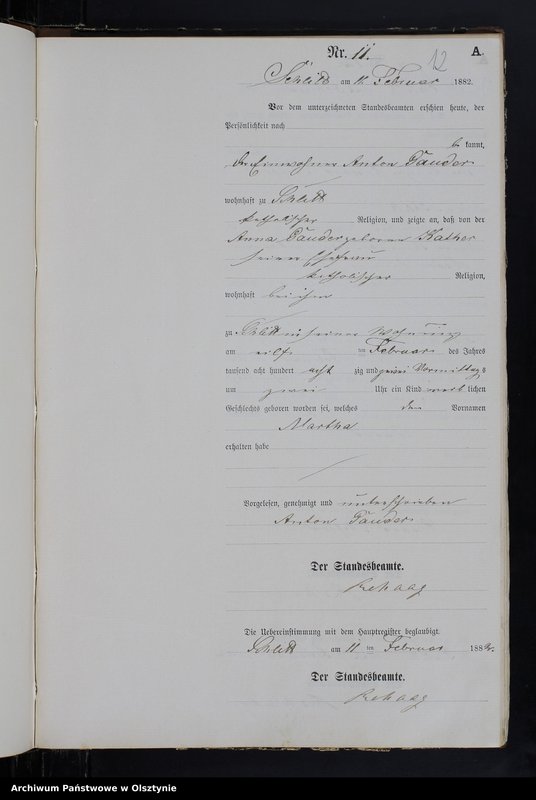 Nr. 11.
12
A.
Schlitt am 11. Februar 1882.
Vor dem unterzeichneten Standesbeamten erschien heute, der
Persönlichkeit nach
be kannt,
der Einwohner Anton Tauder
wohnhaft zu Schlitt
katholischer Religion, und zeigte an, daß von der
Anna Tauder geborene Kather
seiner Ehefrau
katholischer Religion,
wohnhaft bei ihm
zu Schlitt in seiner Wohnung
am eilf ten Februar des Jahres
tausend acht hundert acht zig und zwei Vormittags
um zwei Uhr ein Kind weib lichen
Geschlechts geboren worden sei, welches den Vornamen
Martha
erhalten habe
Vorgelesen, genehmigt und unterschrieben
Anton Tauder
Der Standesbeamte.
Rehaag
Die Uebereinstimmung mit dem Hauptregister beglaubigt
Schlitt am 11 ten Februar 1882.
Der Standesbeamte.
Rehaag
Archiwum Państwowe w Olsztynie